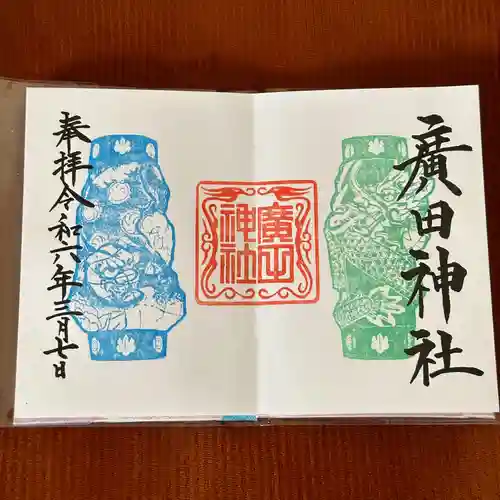 廣田神社
廣田
神社
奉拝令和六年三月七日